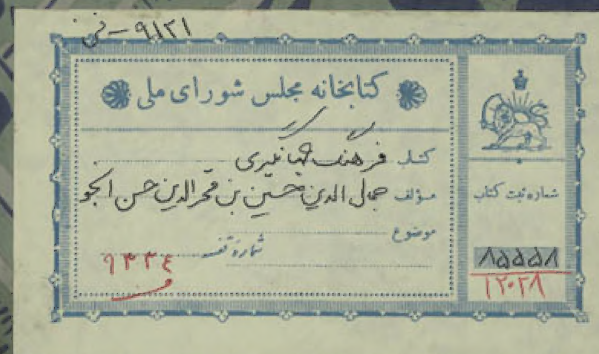 ۹۱۲۱ - فن
کتابخانه مجلس شورای ملی
کتاب فرهنگ جهانگیری
مؤلف جمال الدین حسین بن فخرالدین حسن انجو
موضوع
شماره قفسه ۹۳۳۴
شماره ثبت کتاب
۸۵۵۵۸
۱۲۰۲۸